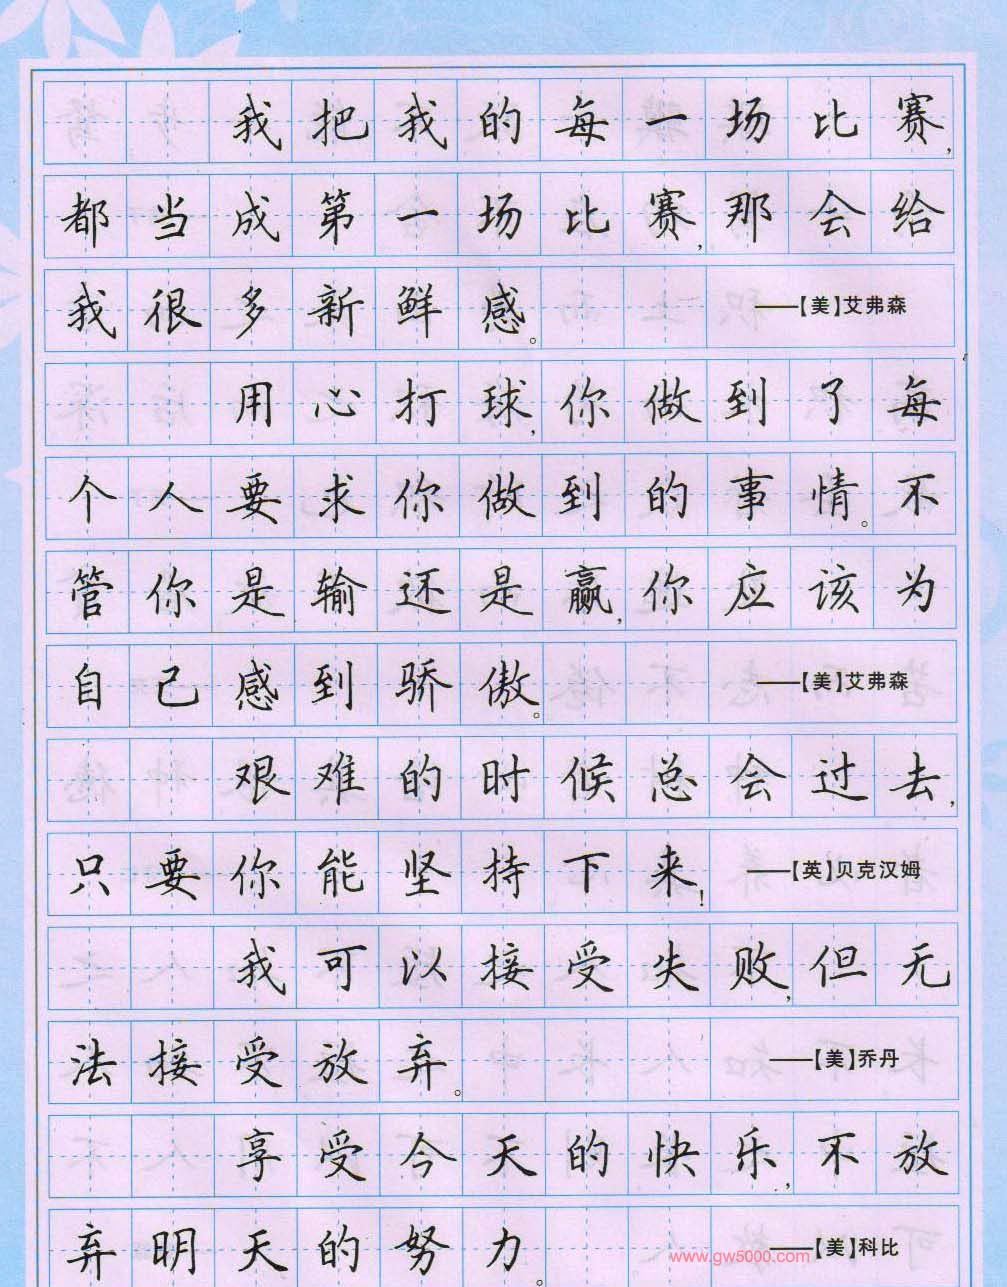 我把我的每一场比赛,
都当成第一场比赛,那会给
我很多新鲜感。——【美】艾弗森
用心打球,你做到了每
个人要求你做到的事情。不
管你是输还是赢,你应该为
自己感到骄傲。——【美】艾弗森
艰难的时候总会过去,
只要你能坚持下来!——【英】贝克汉姆
我可以接受失败,但无
法接受放弃。——【美】乔丹
享受今天的快乐,不放
弃明天的努力。www.gw5000.com——【美】科比